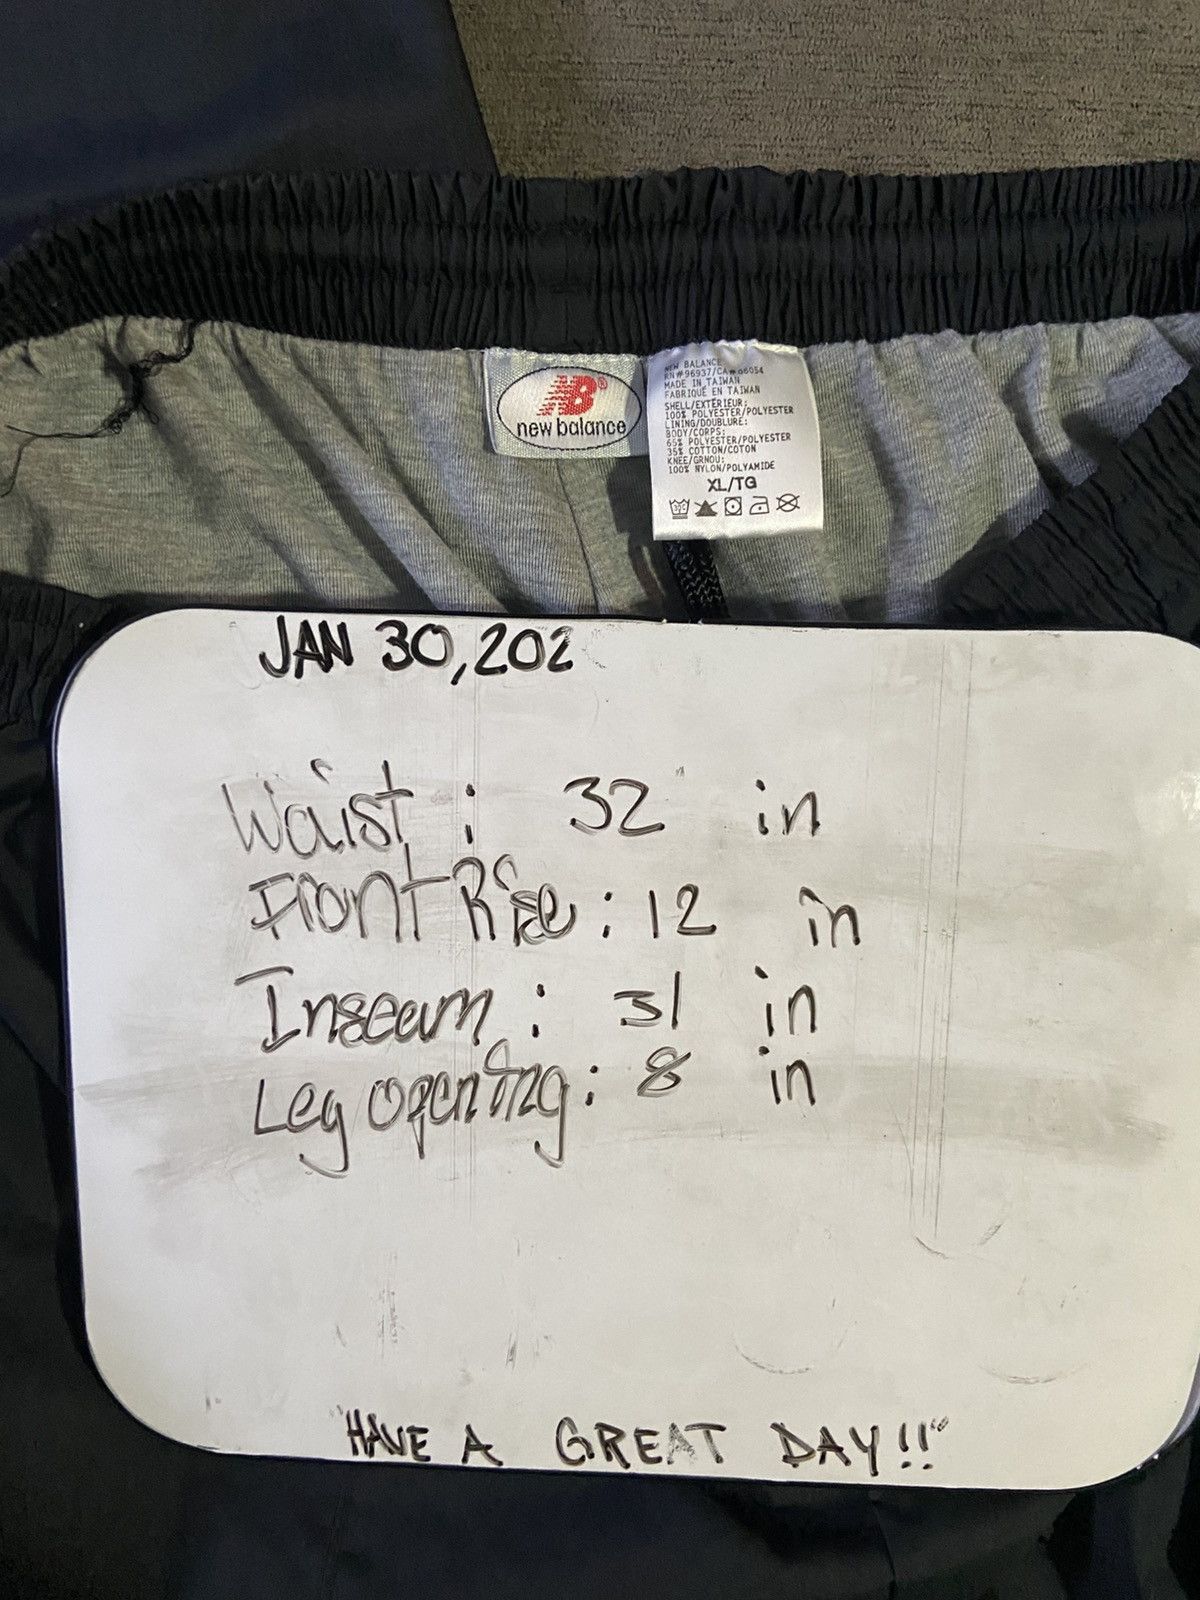 NB®
new balance
NEW BALANCE
RN#96937/CA#08054
MADE IN TAIWAN
FABRIQUÉ EN TAIWAN
SHELL/EXTÉRIEUR:
100% POLYESTER/POLYESTER
LINING/DOUBLURE:
BODY/CORPS:
65% POLYESTER/POLYESTER
35% COTTON/COTON
KNEE/GENOU:
100% NYLON/POLYAMIDE
XL/TG
JAN 30,202
Waist : 32" in
Front Rise : 12 in
Inseam : 31 in
Leg opening : 8 in
"HAVE A GREAT DAY!!"